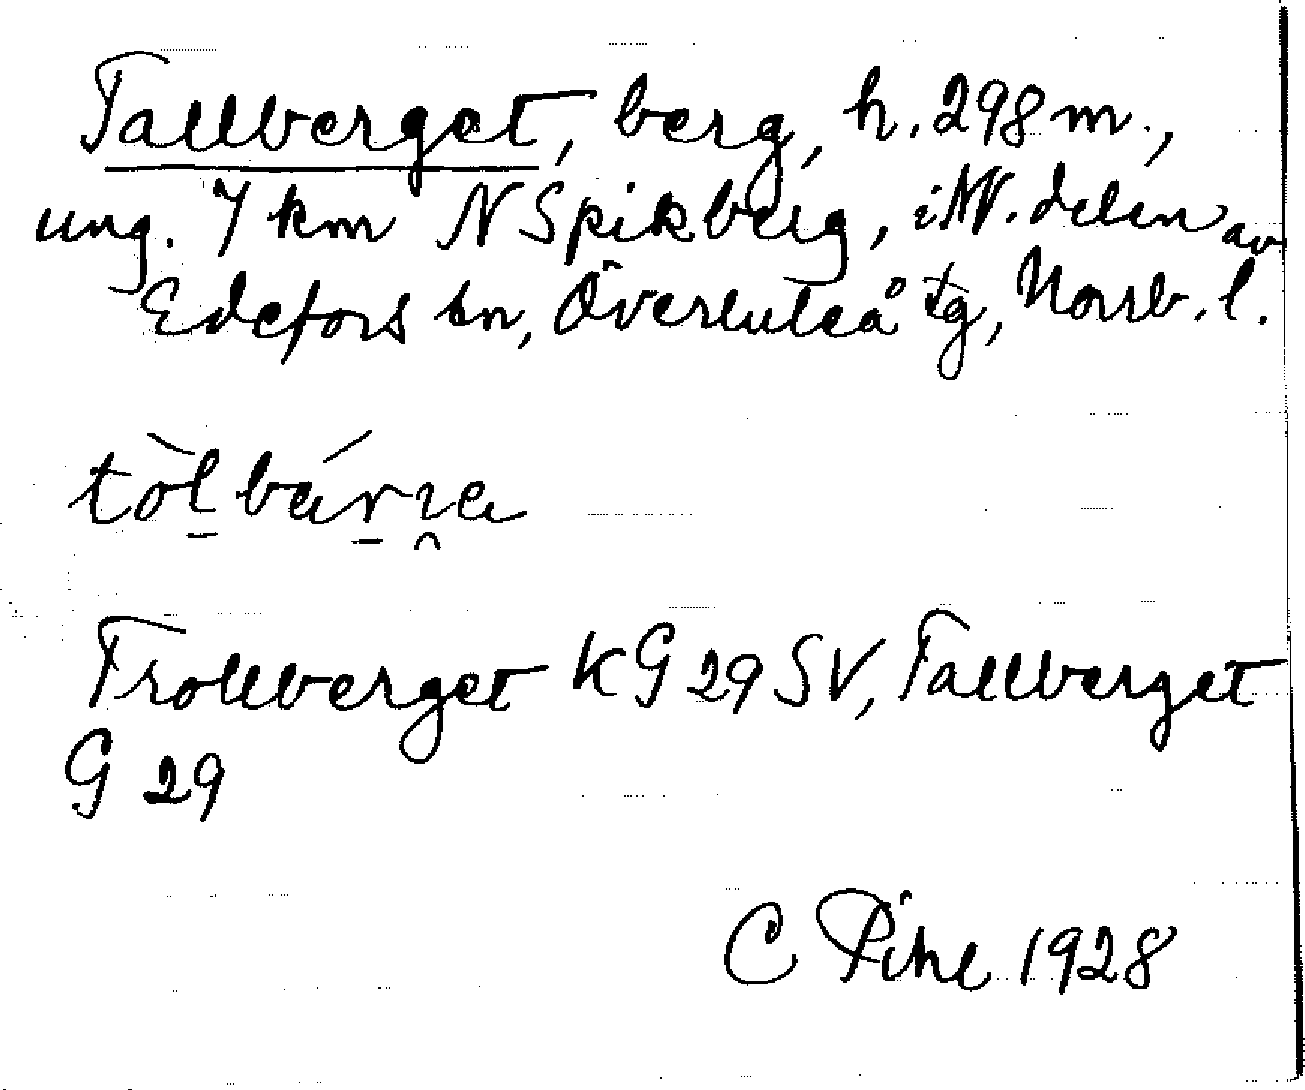 Tallberget, berg, h. 298 m.,
ung. 7 km N Spikberg, i NV. delen av
Edefors sn, Överluleå tg, Norrb. l.
tòl̠bár̠ı̯a
Trollberget KG 29 SV, Tallberget
G 29
C Pihl 1928